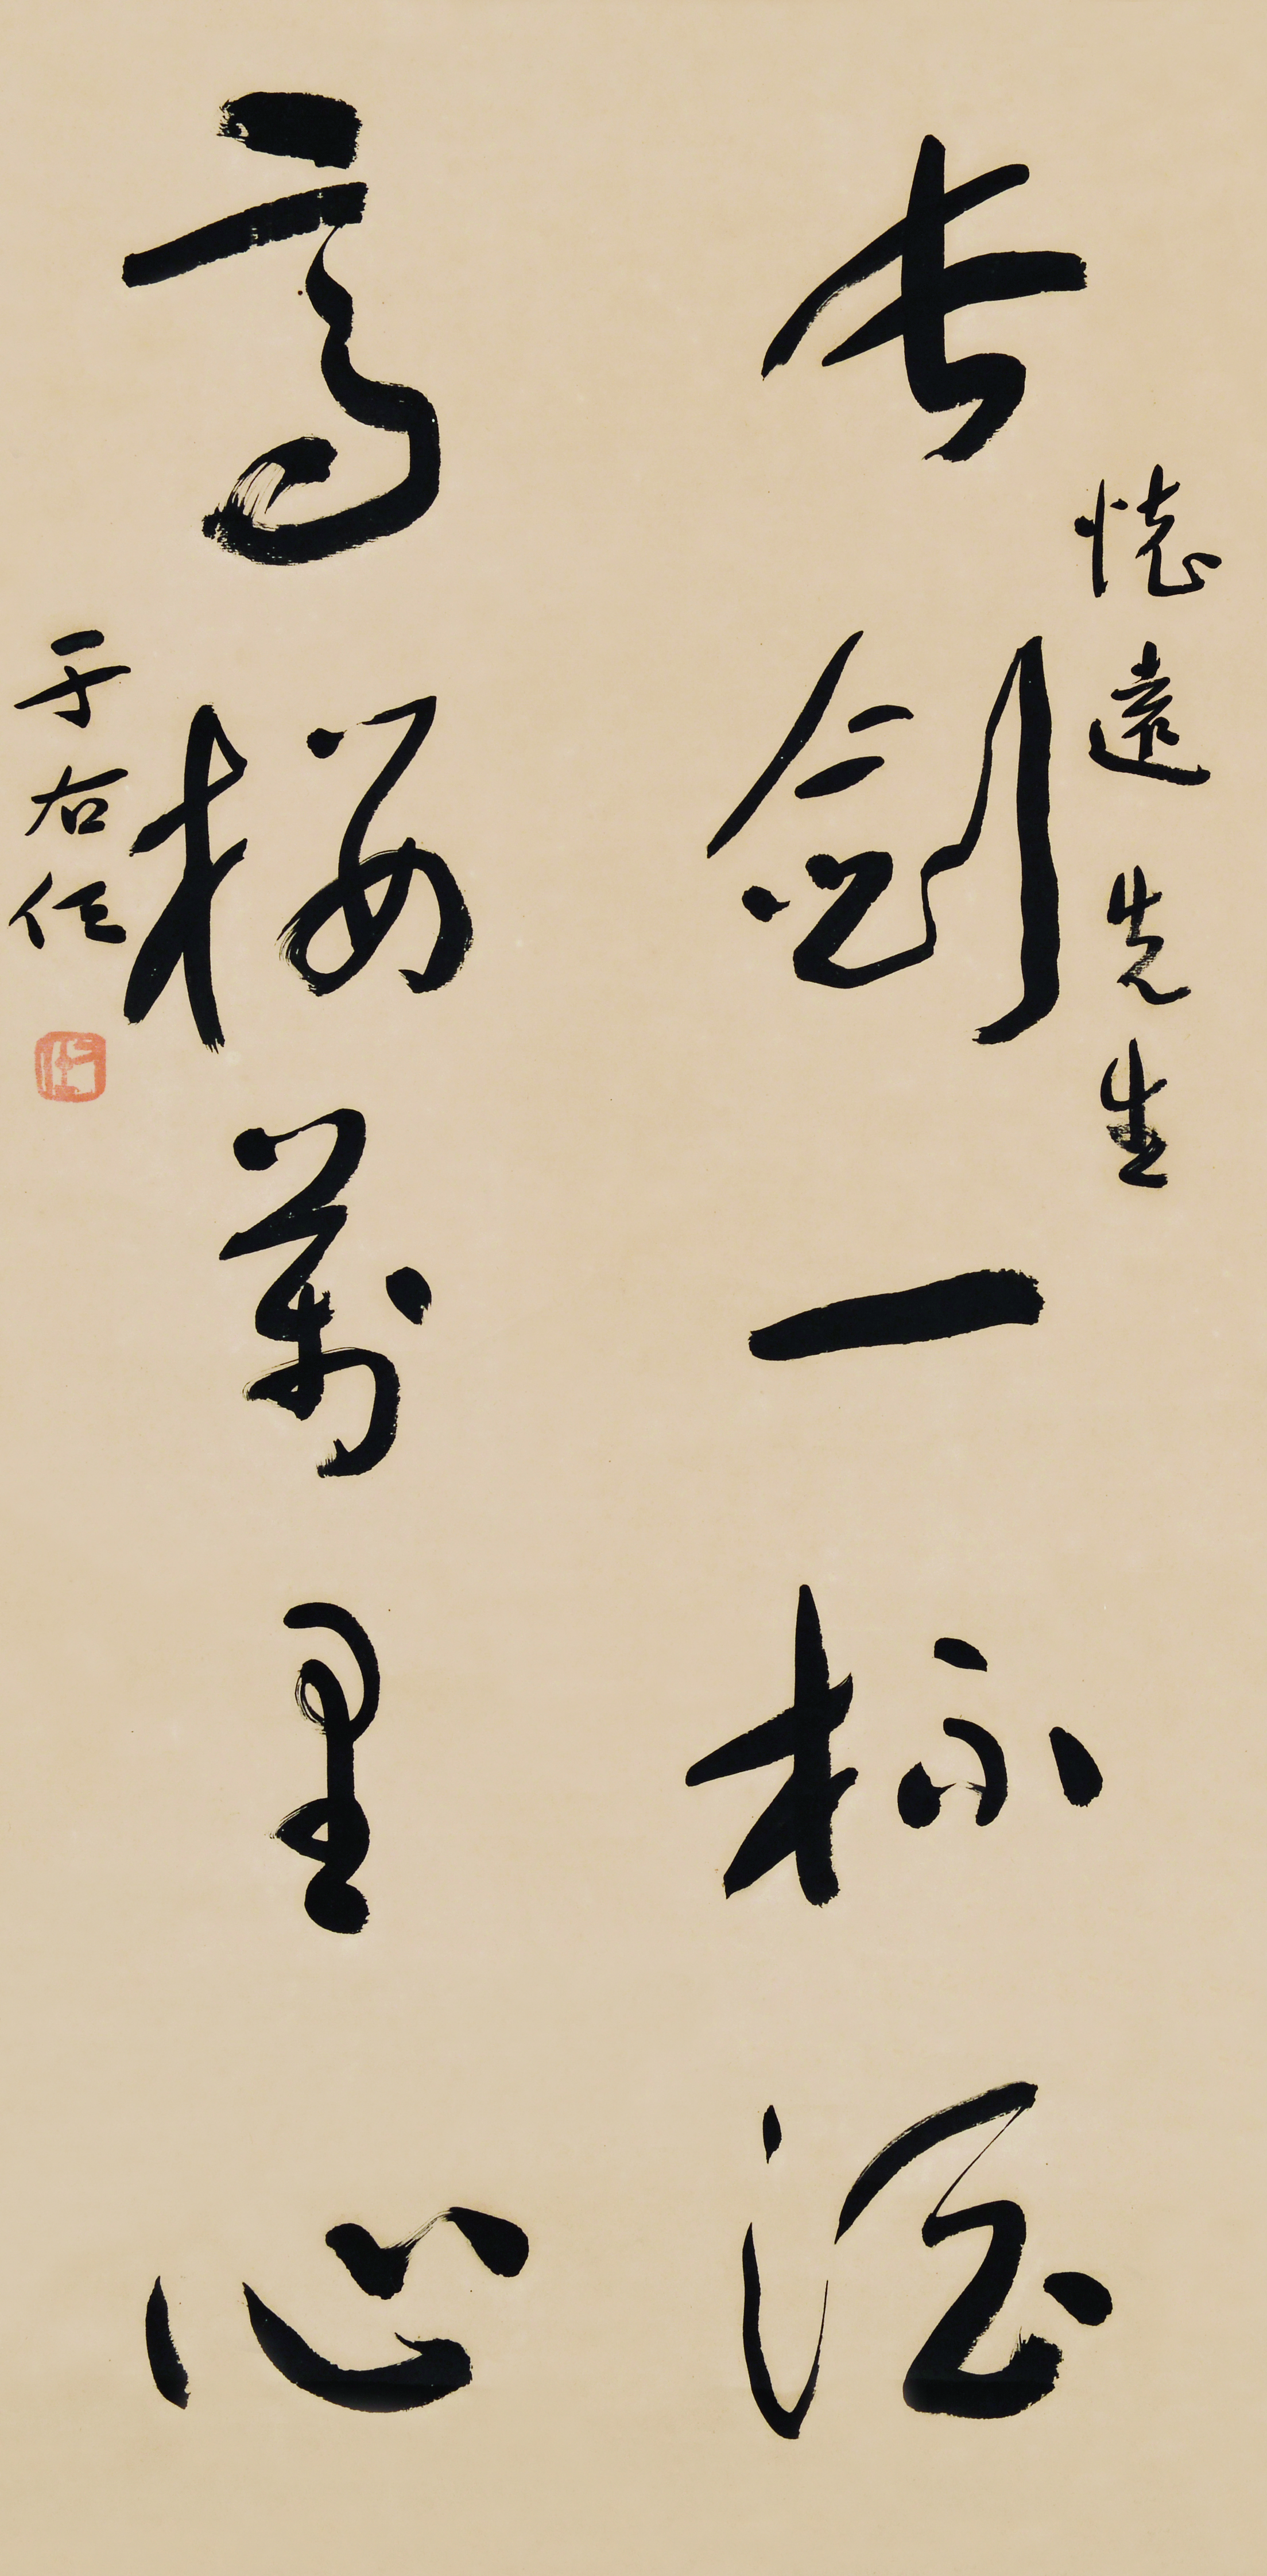 懷遠先生
長劍一杯酒
高樓萬里心
于右任